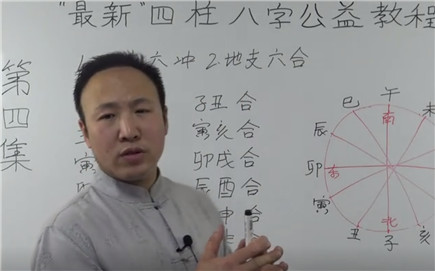 "最新"四柱八字公益教程
第四集
六冲 2地支六合
子丑合
寅亥合
卯戌合
辰酉合
申合
午
巳
未
辰
南
卯
东
寅
北
丑
子
亥